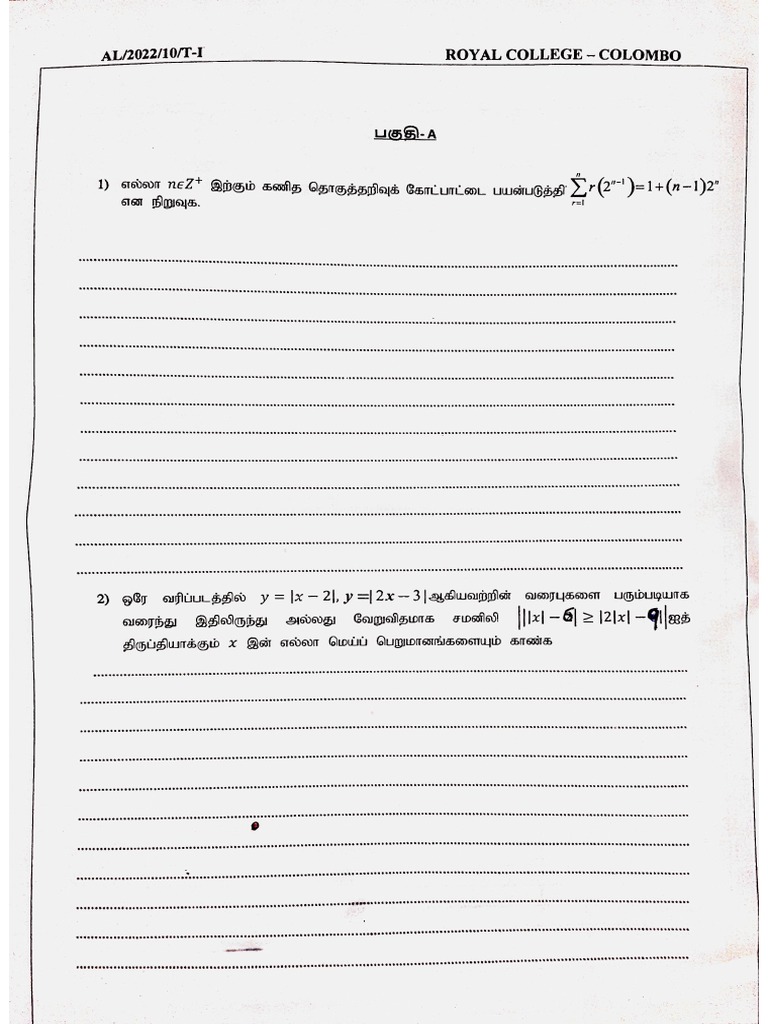 AL/2022/10/T-I ROYAL COLLEGE – COLOMBO
பகுதி- A
1) எல்லா nϵZ⁺ இற்கும் கணித தொகுத்தறிவுக் கோட்பாட்டை பயன்படுத்தி \sum_{r=1}^{n} r(2^{n-1})=1+(n-1)2^n
என நிறுவுக.
2) ஒரே வரிப்படத்தில் y = |x − 2|, y =| 2x − 3|ஆகியவற்றின் வரைபுகளை பரும்படியாக
வரைந்து இதிலிருந்து அல்லது வேறுவிதமாக சமனிலி |||x| − 6| ≥ |2|x| − 9||ஐத்
திருப்தியாக்கும் x இன் எல்லா மெய்ப் பெறுமானங்களையும் காண்க